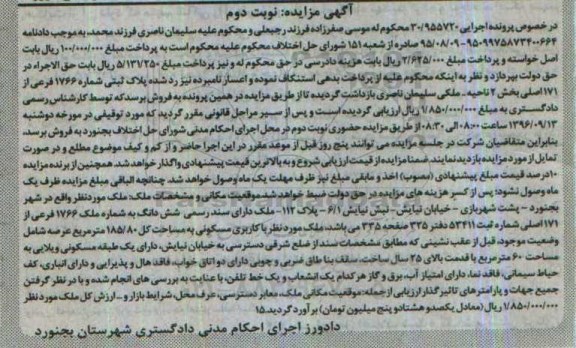 آگهی مزایده: نوبت دوم
در خصوص پرونده اجرایی ۳۰/۹۵۵۷۲۰ محکوم له موسی صفرزاده فرزند رجبعلی و محکوم علیه سلیمان ناصری فرزند محمد، به موجب دادنامه
۹۵۰۹۹۷۵۸۷۳۴۰۰۶۶۴-۹۵/۰۸/۰۹ صادره از شعبه ۱۵۱ شورای حل اختلاف محکوم علیه محکوم است به پرداخت مبلغ ۱۰۰/۰۰۰/۰۰۰ ریال بابت
اصل خواسته و پرداخت مبلغ ۲/۶۲۵/۰۰۰ ریال بابت هزینه دادرسی در حق محکوم له و نیز پرداخت مبلغ ۵/۱۳۱/۲۵۰ ریال بابت حق الاجراء در
حق دولت بپردازد و نظر به اینکه محکوم علیه از پرداخت بدهی استنکاف نموده و اعسار نامبرده نیز رد شده پلاک ثبتی شماره ۱۷۶۶ فرعی از
۱۷۱ اصلی بخش ۲ ناحیه .. ملکی سلیمان ناصری بازداشت گردیده تا از طریق مزایده در همین پرونده به فروش برسد که توسط کارشناس رسمی
دادگستری به مبلغ ۱/۸۵۰/۰۰۰/۰۰۰ ریال ارزیابی گردیده است و پس از سیر مراحل قانونی مقرر گردید که مورد توقیفی در مورخه دوشنبه
۱۳۹۶/۰۹/۱۳ ساعت ۰۸:۰۰ الی ۰۸:۳۰ از طریق مزایده حضوری نوبت دوم در محل اجرای احکام مدنی شورای حل اختلاف بجنورد به فروش برسد.
بنابراین متقاضیان شرکت در جلسه مزایده می توانند پنج روز قبل از موعد مقرر در این اجرا حاضر و از کم و کیف موضوع مطلع و در صورت
تمایل از مورد مزایده بازدید نمایند. ضمنا مزایده از قیمت ارزیابی شروع و به بالاترین قیمت پیشنهادی واگذار خواهد شد. همچنین از برنده مزایده
۱۰ درصد قیمت مبلغ پیشنهادی (مصوب) اخذ و مابقی مبلغ نیز ظرف مهلت یک ماه وصول خواهد شد. چنانچه الباقی مبلغ مزایده ظرف یک
ماه وصول نشود؛ پس از کسر هزینه های مزایده در حق دولت ضبط خواهد شد. موقعیت مکانی و مشخصات ملک: ملک مورد نظر واقع در شهر
بجنورد - پشت شهربازی - خیابان نیایش - نبش نیایش ۶/۱ - پلاک ۱۱۲ - ملک دارای سند رسمی شش دانگ به شماره ملک ۱۷۶۶ فرعی از
۱۷۱ اصلی شماره ثبت ۵۳۴۱۱ دفتر ۳۲۵ صفحه ۳۳۵ می باشد. ملک مورد نظر با کاربری مسکونی به مساحت کل ۱۸۵/۸۰ مترمربع عرصه شامل
وضعیت موجود، قبل از عقب نشینی که مطابق مشخصات سند از ضلع شرقی دسترسی به خیابان نیایش، دارای یک طبقه مسکونی ویلایی به
مساحت ۶۰ مترمربع با قدمت بالای ۲۵ سال ساخت، سقف بنا طاق ضربی و چوبی دارای دو اتاق خواب، فاقد هال و پذیرایی و دارای انباری، کف
حیاط سیمانی، فاقد نما، دارای امتیاز آب، برق و گاز هر کدام یک انشعاب و یک خط تلفن، با عنایت به بررسی های انجام شده و با در نظر گرفتن
جمیع جهات و پارامترهای تاثیر گذار ارزیابی از جمله: موقعیت مکانی ملک، معابر دسترسی، عرف محل، شرایط بازار و .. ارزش کل ملک مورد نظر
۱/۸۵۰/۰۰۰/۰۰۰ ریال (معادل یکصد و هشتاد و پنج میلیون تومان) برآورد گردید. ۱۵
دادورز اجرای احکام مدنی دادگستری شهرستان بجنورد